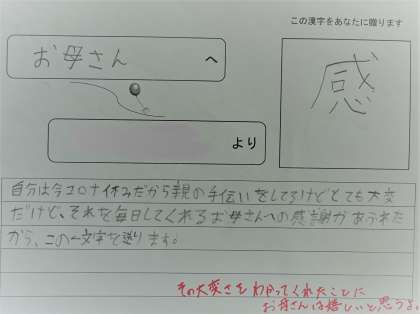 この漢字をあなたに贈ります
お母さん へ
感
より
自分は今コロナ休みだから親の手伝いをしてるけどとても大変
だけど、それを毎日してくれるお母さんへの感謝があふれた
から、この一文字を送ります。
その大変さをわかってくれたことに
お母さんは嬉しいと思うよ。